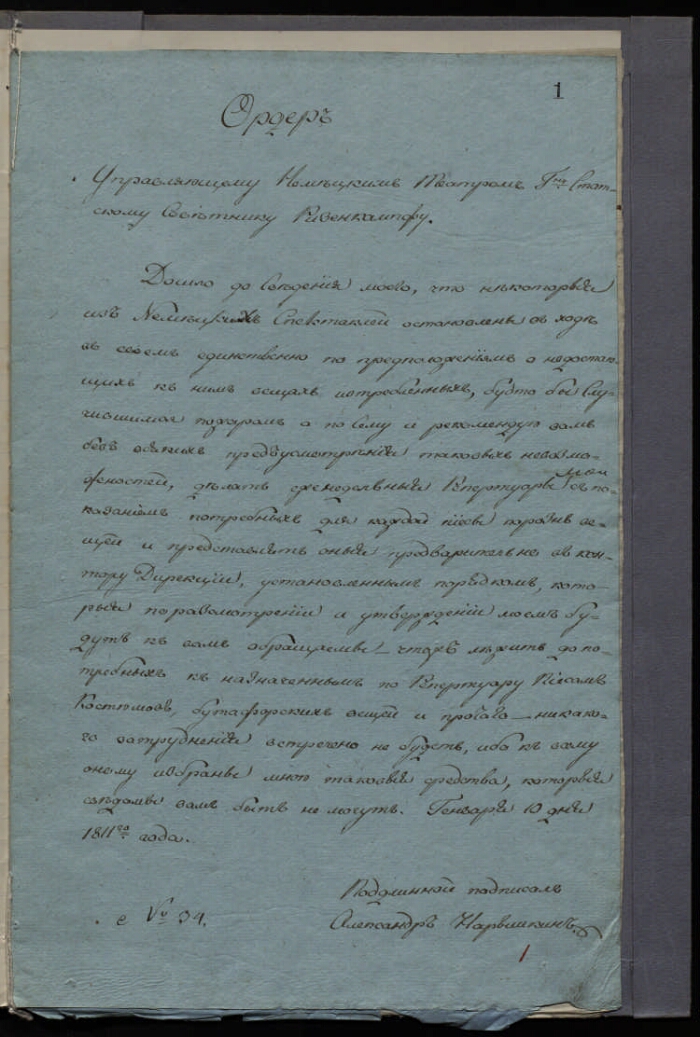 1
Ордеръ
Управляющему Немѣцкимъ Театромъ Гну Стат-
скому Совѣтнику Ризенкампфу.
Дошло до свѣдѣнія моего, что нѣкоторыя
изъ Немѣцкихъ Спектаклей остановлены въ ходѣ
въ своемъ единственно по предположеніямъ о недостаю-
щихъ къ нимъ вещахъ истребленныхъ, будто бы слу-
чившимся пожаромъ а по сему и рекомендую вамъ
безъ всякихъ предъусмотрѣній таковыхъ невозмо-
жностей, дѣлать еженедельный Репертуаръ съ по-
казаніемъ потребныхъ для каждой піесы порознь ве-
щей и представлять оныя предварительно въ кон-
тору Дирекціи, установленнымъ порядкомъ, кото-
рыя по разсмотреніи и утвержденіи моемъ бу-
дутъ къ вамъ обращаемы — чтожъ лежитъ до по-
требныхъ къ назначеннымъ по Репертуару Піесамъ
Костюмовъ, бутафорскихъ вещей и прочаго — никако-
го затрудненія встречено не будетъ, ибо къ сему
оному избраны мною таковыя средства, которыя
свѣдомы вамъ быть не могутъ. Генваря 10 дня
1811го года.
Подлинной подписалъ
Александръ Нарышкинъ.
с № 34.
1